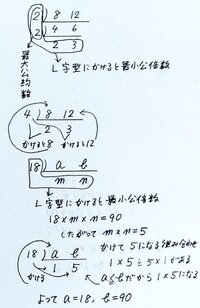 2) 8 12
2) 4 6
2 3
最大公約数
L字型にかけると最小公倍数
4) 8 12
2 3
かけると8 かけると12
18) a b
m n
L字型にかけると最小公倍数
18×m×n=90
したがって m×n=5
かけて5になる組み合わせ
18) a b
1 5
1×5と5×1がある
かける
a<bだから1×5になる
よって a=18, b=90